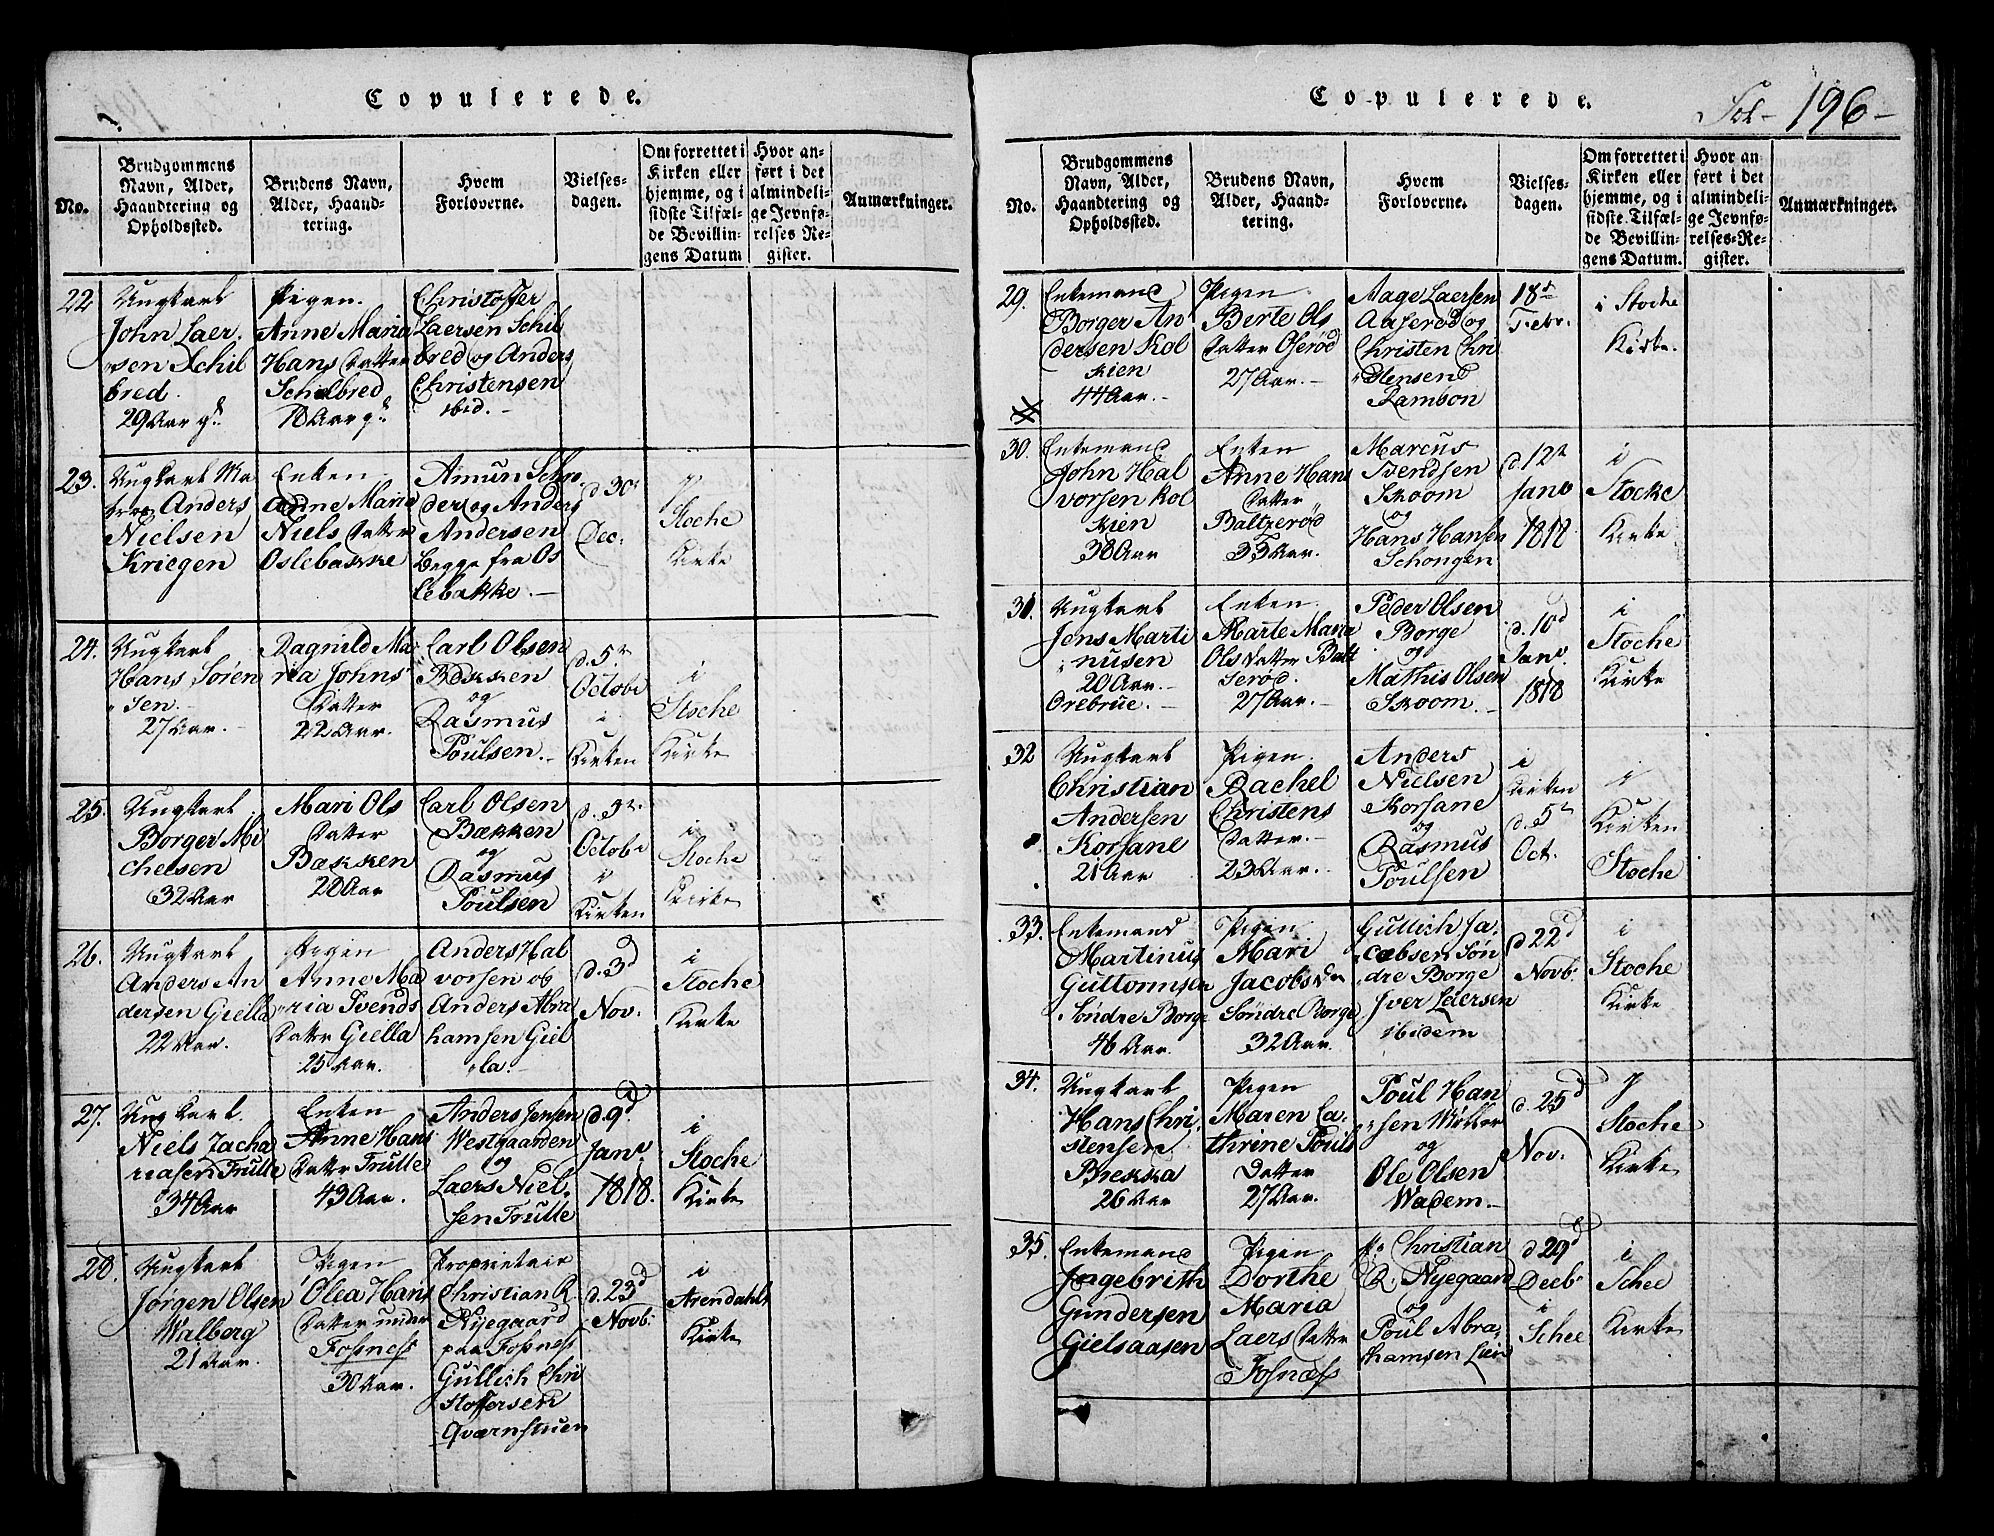 Copulerede.
No.
Brudgommens
Navn, Alder,
Haandtering og
Opholdssted.
Brudens Navn,
Alder, Haand-
tering.
Hvem
Forloverne.
Vielses-
dagen.
Om forrettet i
Kirken eller
hjemme, og i
sidste Tilfæl-
de Bevillin-
gens Datum
Hvor an-
ført i det
almindeli-
ge Jevnfø-
relses Re-
gister.
Anmærkninger.
22
Ungkarl
John Laer
sen Schil
bred.
29 Aar g.
Pigen.
Anne Maria
Hans Datter
Schilbred
18 Aar g.
Christoffer
Laersen Schil
bred og Anders
Christensen
ibid. -
23.
Ungkarl Ma
tros Anders
Nielsen
Kriegen
Enken
Anne Marie
Niels Datter
Oslebakke
Amun Schrø
der og Anders
Andersen
begge fra Os
lebakke. -
d. 30
Dec.
i
Stoche
Kirke
24.
Ungkarl
Hans Søren
sen. -
27 Aar. -
Ragnild Ma
ria Johns
Datter
22 Aar.
Carl Olsen
Bekken
og
Rasmus
Poulsen. -
d. 5te
Octobr
i
Kirken
i
Stoche
Kirke
25.
Ungkarl
Borger Mi
chelsen
32 Aar
Mari Ols
Datter
Bækken
28 Aar
Carl Olsen
Bækken
og
Rasmus
Poulsen
Octobr
i
Kirken
i
Stoche
Kirke
26.
Ungkarl
Anders An
dersen Giella
22 Aar.
Pigen
Anne Ma
ria Svends
Datter Giella
25 Aar.
Anders Hal
vorsen ob
Anders Abra
hamsen Giel
la. -
d. 3d
Nov.
i
Stoche
Kirke
27.
Ungkarl.
Niels Zacha
riasen Trulle
34 Aar
Enken
Anne Hans
Datter Trulle
43 Aar.
Anders Jensen
Westgaarden
og
Laers Niel
sen Trulle
d. 9d
Janv.
1818.
i
Stoche
Kirke
28.
Ungkarl
Jørgen Olsen
Walberg
21 Aar.
Pigen
Olea Hans
Datter under
Fosness
30 Aar.
Proprietair
Christian R.
Nyegaard
paa Fosness
Gullich Chri
stoffersen
Qværnstuen
d. 23d
Novb.
i
Arendahls
Kirke
Copulerede.
Fol- 196-
No.
Brudgommens
Navn, Alder,
Haandtering og
Opholdssted.
Brudens Navn,
Alder, Haand-
tering.
Hvem
Forloverne.
Vielses-
dagen.
Om forrettet i
Kirken eller
hjemme, og i
sidste Tilfæl-
de Bevillin-
gens Datum.
Hvor an
ført i det
almindeli-
ge Jevnfø-
relses-Re-
gister.
Anmærkninger.
29.
Enkemand
Borger An
dersen Kol
kien
44 Aar. -
Pigen
Berte Ols
Datter Oserød
27 Aar. -
Aage Laersen
Aaserød og
Christen Chri
stensen
Rambon
18d
Febr.
i Stoche
Kirke.
30.
Enkemand
John Hal
vorsen Kol
kien
38 Aar
Enken
Anne Hans
Datter
Baltzerød
33 Aar.
Marcus
Svendsen
Skoom
og
Hans Hansen
Schongen
d. 12te
Janv
1818
i
Stocke
Kirke
31.
Ungkarl
Jens Marti
nusen
20 Aar. -
Orebrue. -
Enken
Marte Maria
Ols Datter Balt
serød.
27 Aar. -
Peder Olsen
Borge
og
Mathis Olsen
Skoom. -
d. 10d
Janv.
1818
i
Stoche
Kirke
32
Ungkarl
Christian
Andersen
Korsane
21 Aar
Pigen
Rachel
Christens
Datter. -
23 Aar. -
Anders
Nielsen
Korsane
og
Rasmus
Poulsen
i
Kirken
d. 5te
Oct.
i
Kirken
Stoche
33.
Enkemand
Martinus
Guttormsen
Søndre Borge
46 Aar.
Pigen
Mari
Jacobs Dr
Søndre Borge
32 Aar.
Gullich Ja
cobsen Søn
dre Borge
Iver Laersen
ibidem
d 22d
Novb.
i
Stoche
Kirke
34.
Ungkarl
Hans Chri
stensen
Brekka
26 Aar
Pigen
Maren Ca
thrine Pouls
Datter
27 Aar.
Poul Han
sen Møller
og
Ole Olsen
Wadem. -
d. 25d
Nov.
I
Stoche
Kirke
35.
Enkemand
Ingebrith
Gundersen
Gielsaasen
Pigen
Dorthe
Maria
Laers Datter
Fosnæss
Christian
R. Nyegaard
og
Poul Abra
hamsen Lien
d 29d
Decbr
i
Schee
i
Schee
Kirke